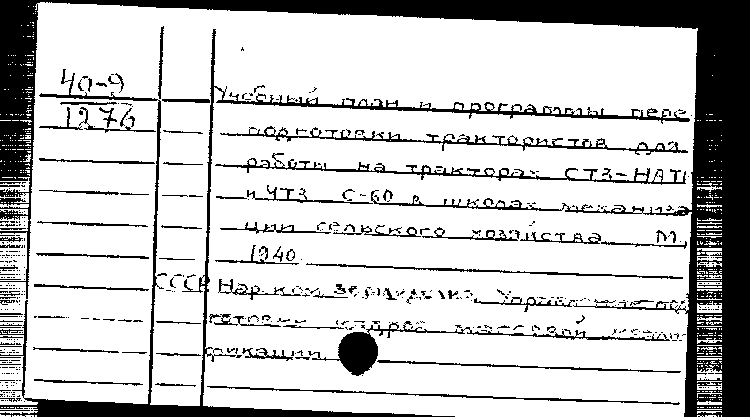 40-9
1276
Учебный план и программы пере
подготовки трактористов для
работы на тракторах СТЗ-НАТИ
и ЧТЗ С-60 в школах механиза
ции сельского хозяйства М,
1940
СССР Нар. ком. земледелия. Управление под
готовки кадров массовой квали
фикации